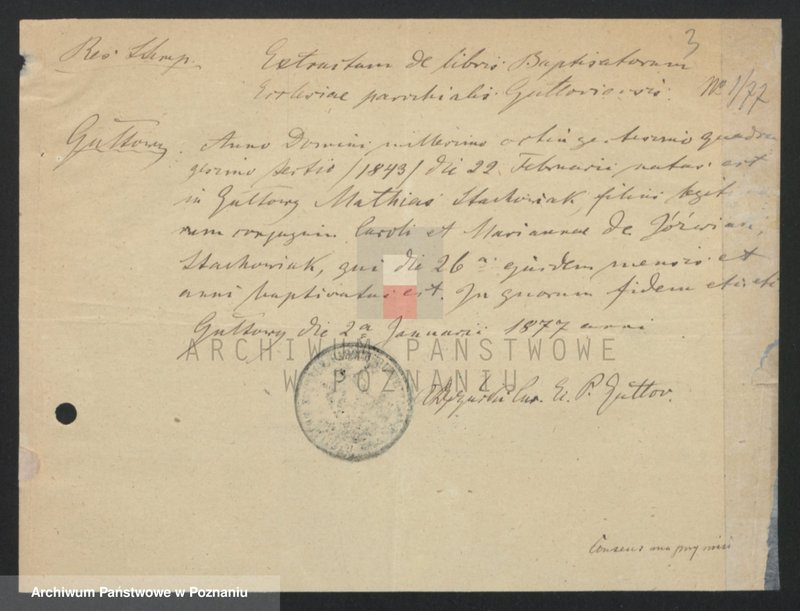 3
Extractum de libris Baptisatorum
Ecclesiae parochialis Gultoviensis. No 1/77
Gułtowy. Anno Domini millesimo octingentesimo quadra
gesimo tertio /1843/ die 22 Februarii natus est
in Gułtowy Mathias Stachowiak, filius legit
conjugum Caroli et Mariannae de Jóźwiak,
Stachowiak, qui die 26 ejusdem mensis et
anni baptisatus est. In quorum fidem
Gułtowy die 2a Januarii 1877 anni
ARCHIWUM PAŃSTWOWE
W POZNANIU
Archiwum Państwowe w Poznaniu